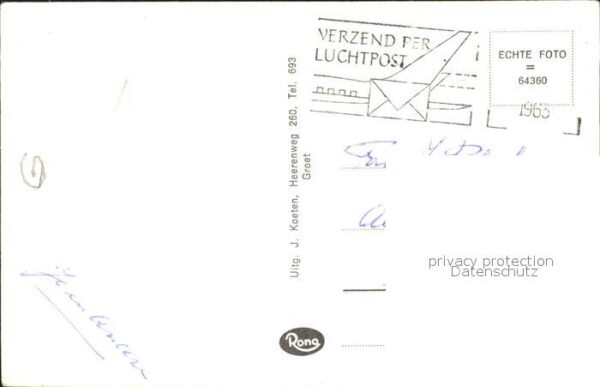 VERZEND PER
LUCHTPOST
ECHTE FOTO
=
64360
1963
Uitg. J. Koeten, Heerenweg 260, Tel. 693
Groet
privacy protection
Datenschutz
Rona